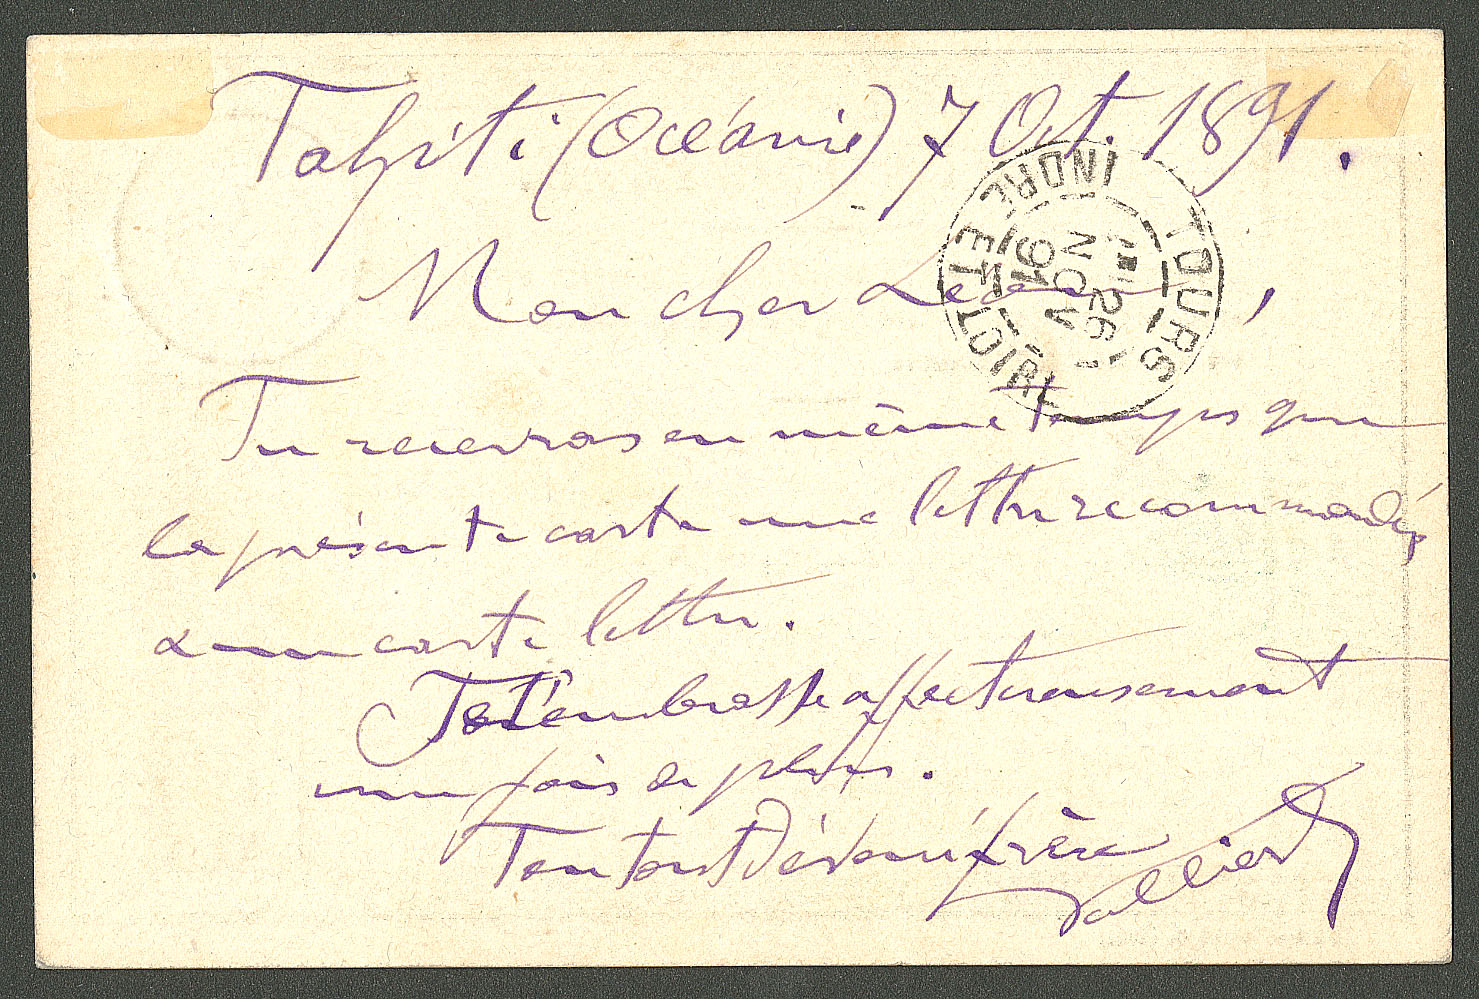 Tahiti (Océanie) 7 Oct. 1891.
Mon cher
TOURS
INDRE ET LOIRE
26
NOV
91
Tu recevras en même temps que
la présente carte une lettre recommandée,
& une carte lettre.
Je t'embrasse affectueusement
une fois de plus.
Ton tout dévoué frère